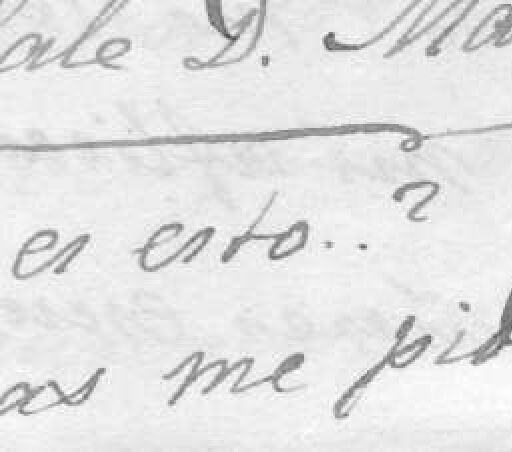 ale D. Ma
es esto..?
as me pid